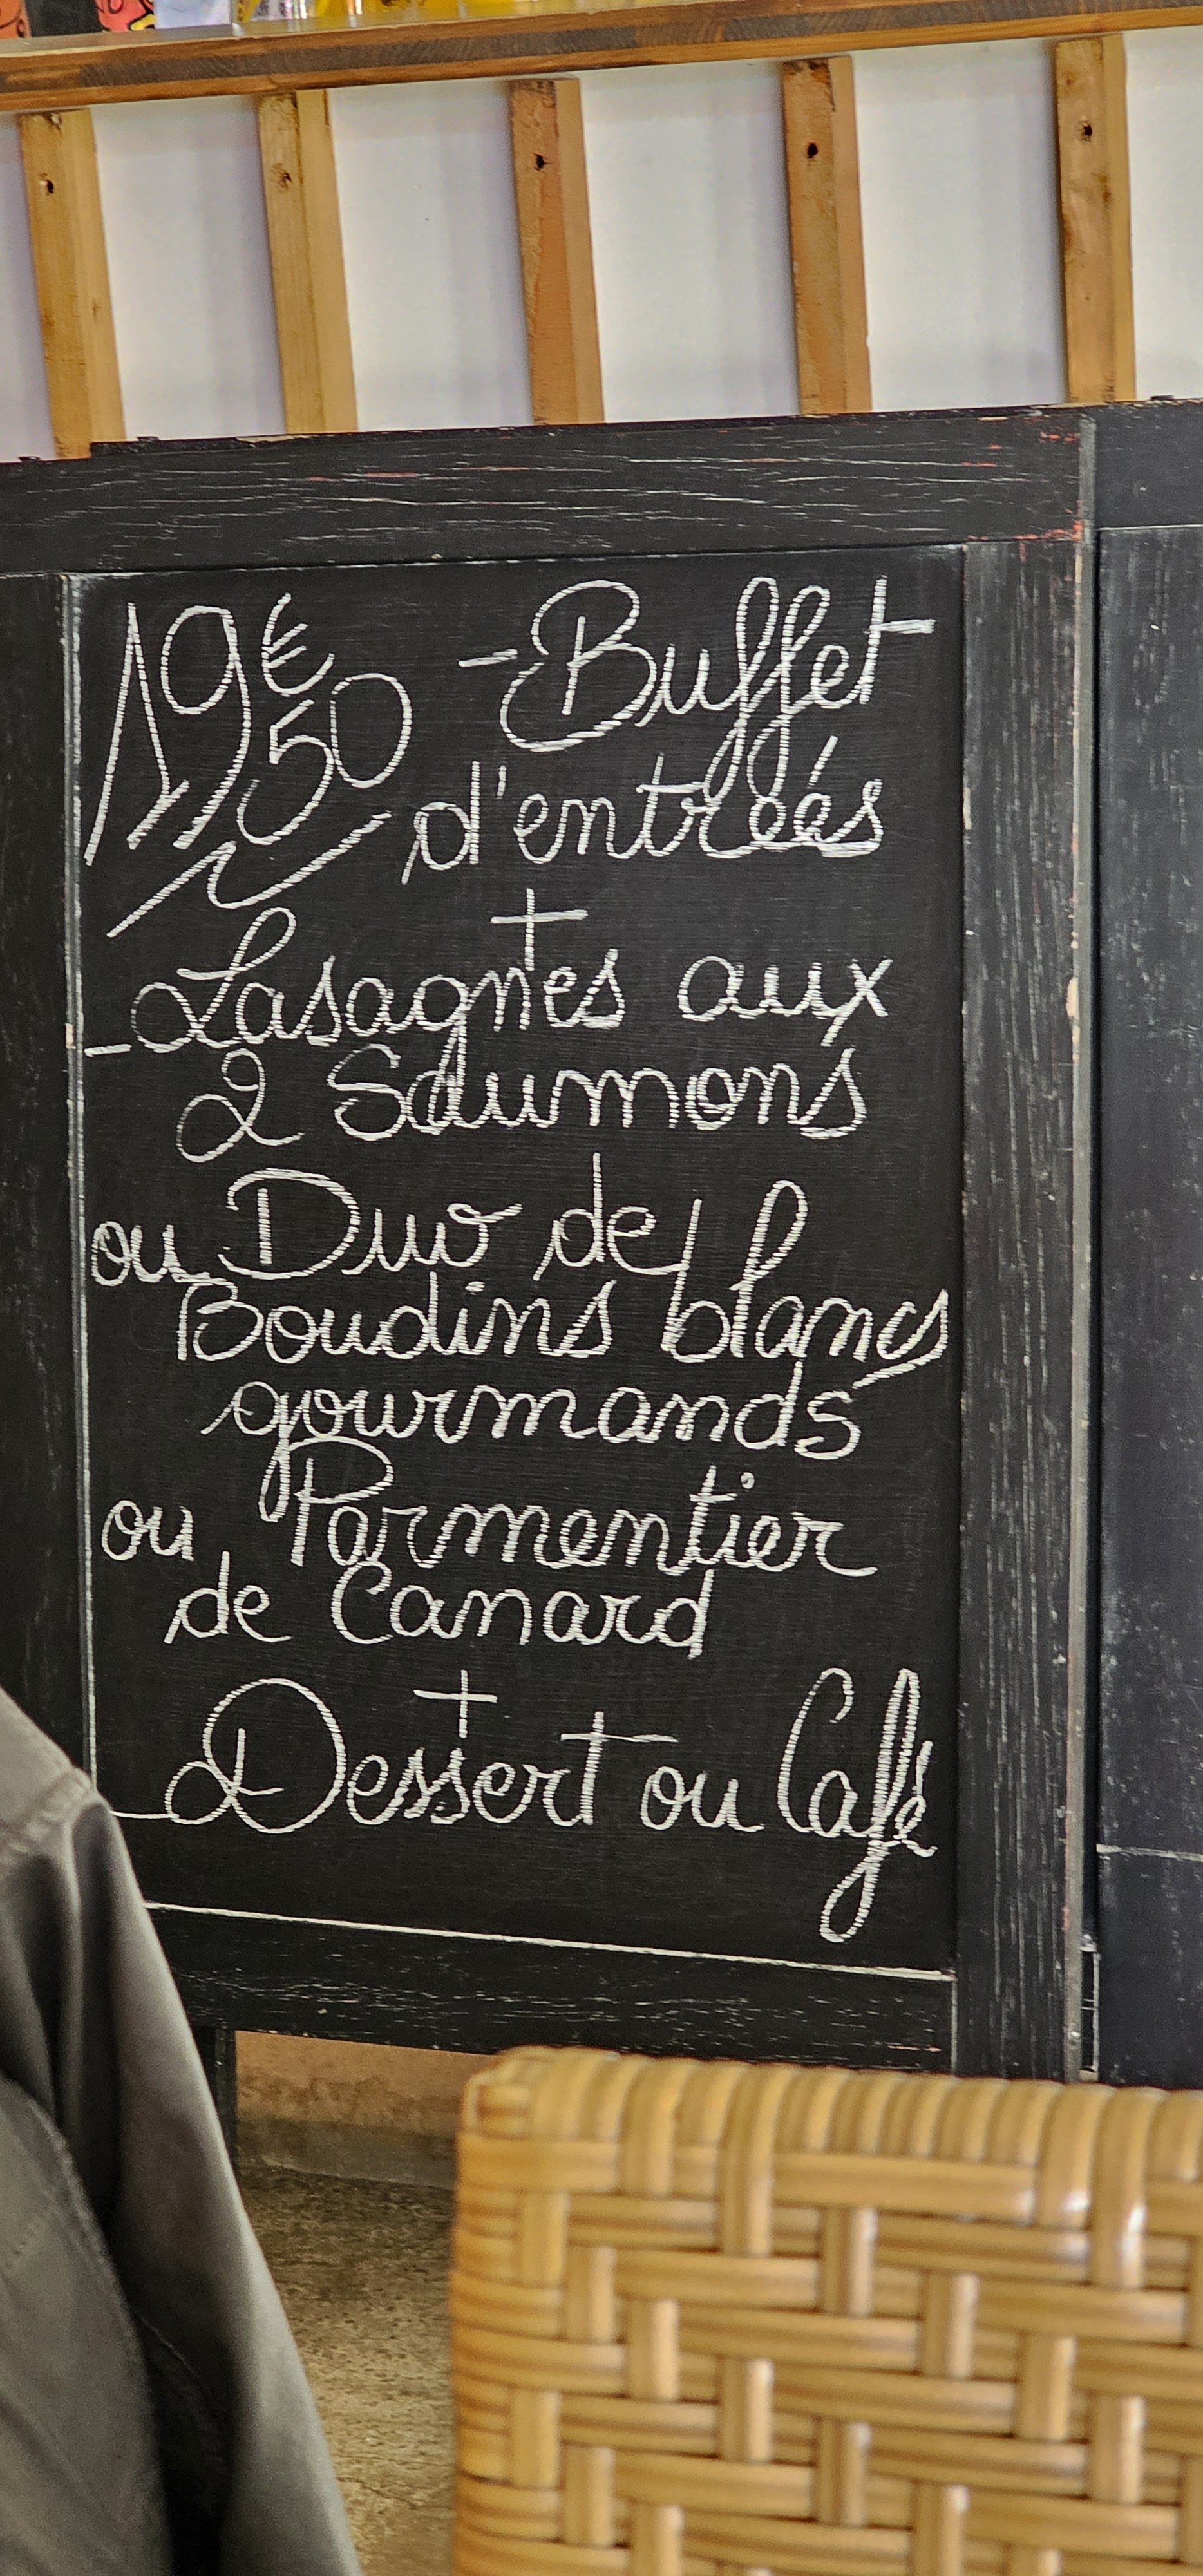 19€50 - Buffet
d'entrées
+
- Lasagnes aux
2 Saumons
ou Duo de
Boudins blancs
gourmands
ou Parmentier
de Canard
+
Dessert ou Café